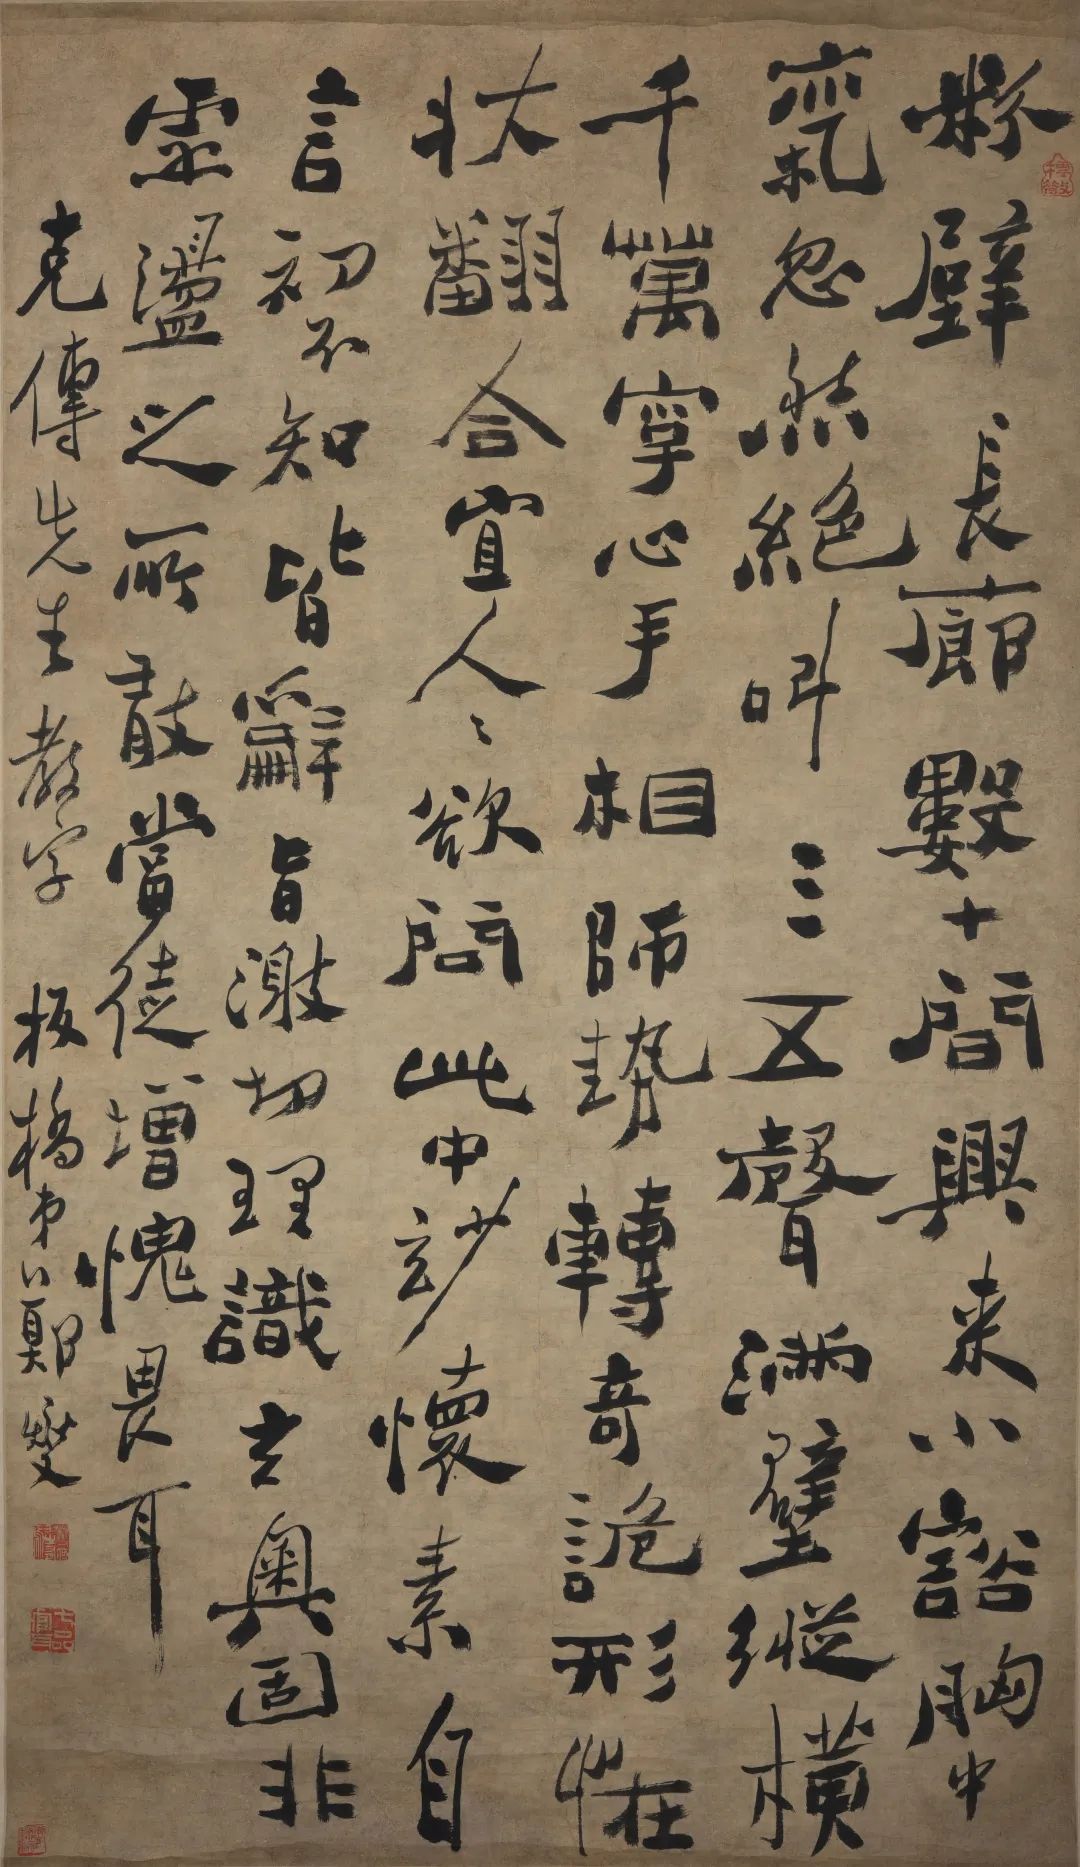 粉壁長廊數十間興來小豁胸中
氣忽然絕叫三五聲滿壁縱橫
千萬字心手相師勢轉奇詭形恠
狀翻合宜人〻欲問此中玅懷素自
言初不知皆辭旨激切理識玄奧固非
虛盪之所敢當徒增愧畏耳
克傳先生教字 板橋弟鄭燮